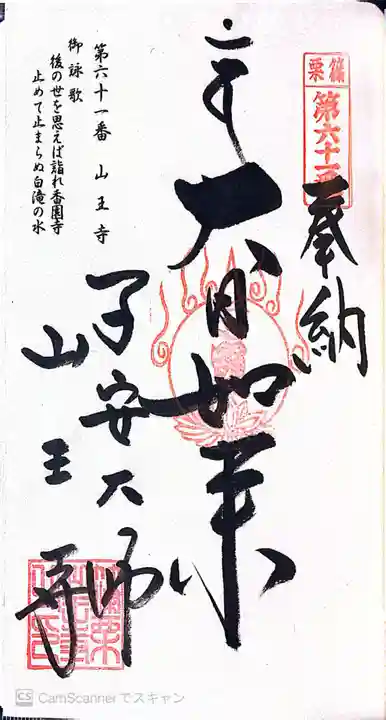 篠栗
第六十一番
奉納
大日如来
子安大師
山王寺
第六十一番 山王寺
御詠歌
後の世を思えば詣れ香園寺
止めて止まらぬ白滝の水
CS CamScannerでスキャン